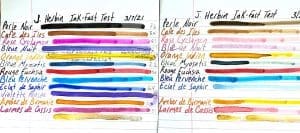 J. Herbin Ink-Fast Test 3/1/23
Perle Noire
Café des Iles
Rose Cyclamen
Bleu Nuit
Orange Indien
Bleu Myosotis
Rouge Fuchsia
Bleu Pervenche
Eclat de Saphir
Violette Pensée
Ambre de Birmanie
Larmes de Cassis
J. Herbin Ink-Fast Test
Perle Noire
Café des Iles
Rose Cyclamen
Bleu Nuit
Orange Indien
Bleu Myosotis
Rouge Fuchsia
Bleu Pervenche
Eclat de Saphir
Ambre de Birmanie
Larmes de Cassis